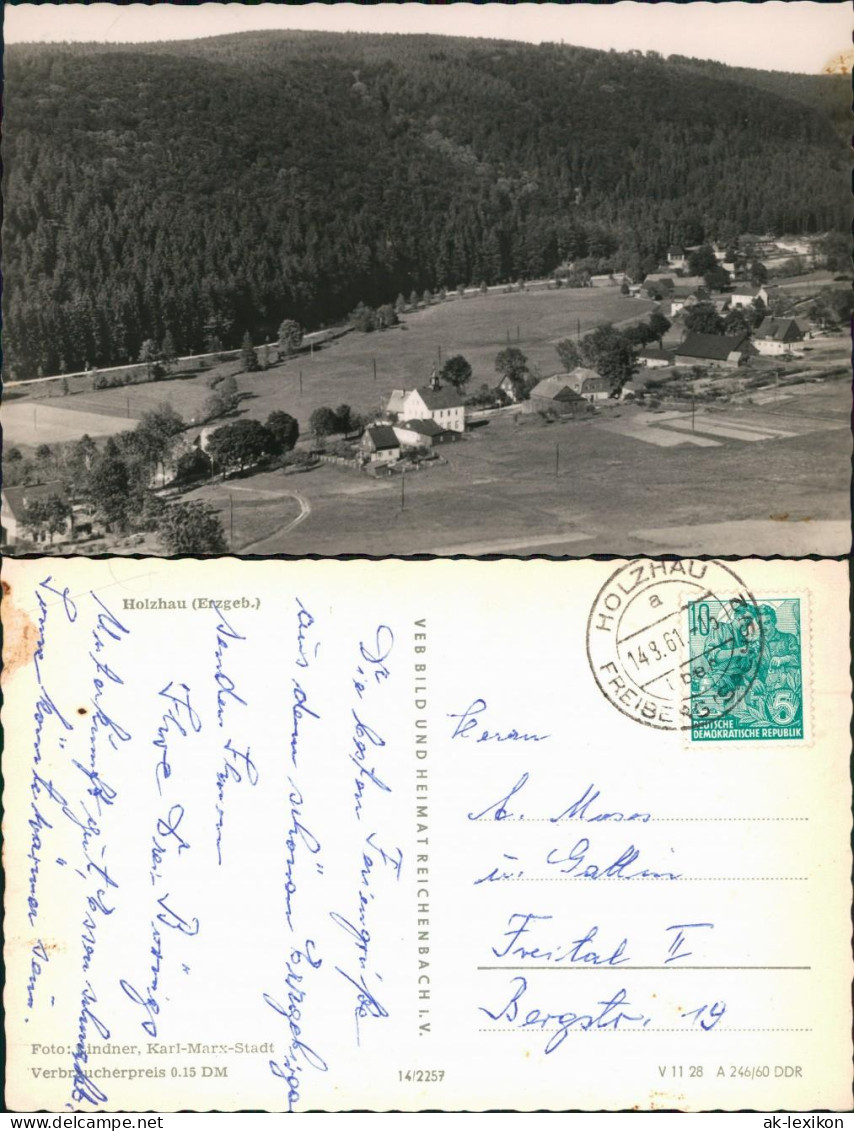 Holzhau (Erzgeb.)
Die besten Feriengrüße
aus dem schönen Erzgebirge
senden Ihnen
Ihre Drei
Unterkunft gut, Essen schmeckt,
könnte wärmer sein.
VEB BILD UND HEIMAT REICHENBACH I. V.
HOLZHAU
a
14.8.61
über
FREIBERG
10
5
DEUTSCHE
DEMOKRATISCHE REPUBLIK
Herrn
A. Moses
u. Gattin
Freital II
Bergstr. 19
Foto: Lindner, Karl-Marx-Stadt
Verbraucherpreis 0.15 DM
14/2257
V 11 28 A 246/60 DDR
© ak-lexikon
ak-lexikon.com